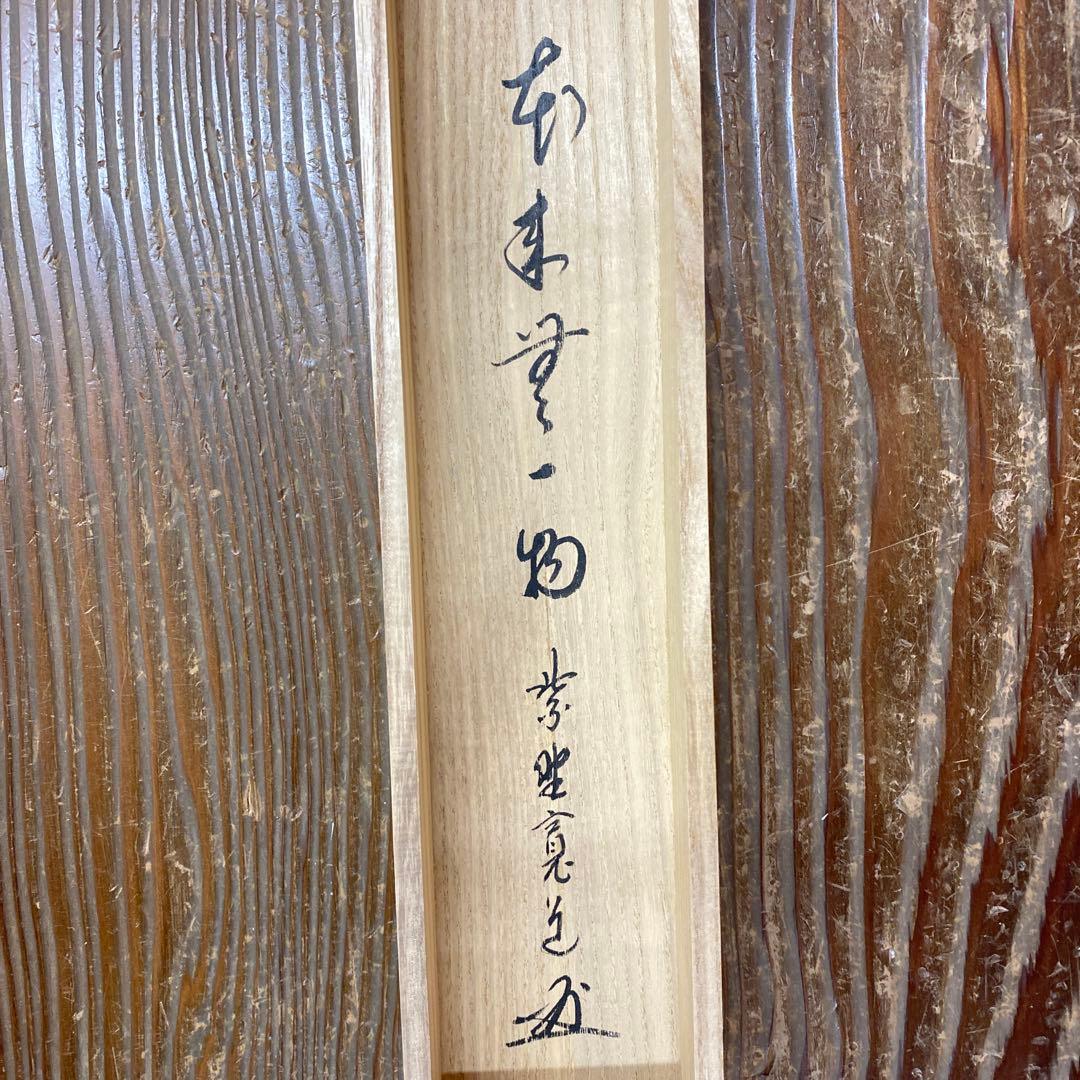 本来無一物 紫野寛道